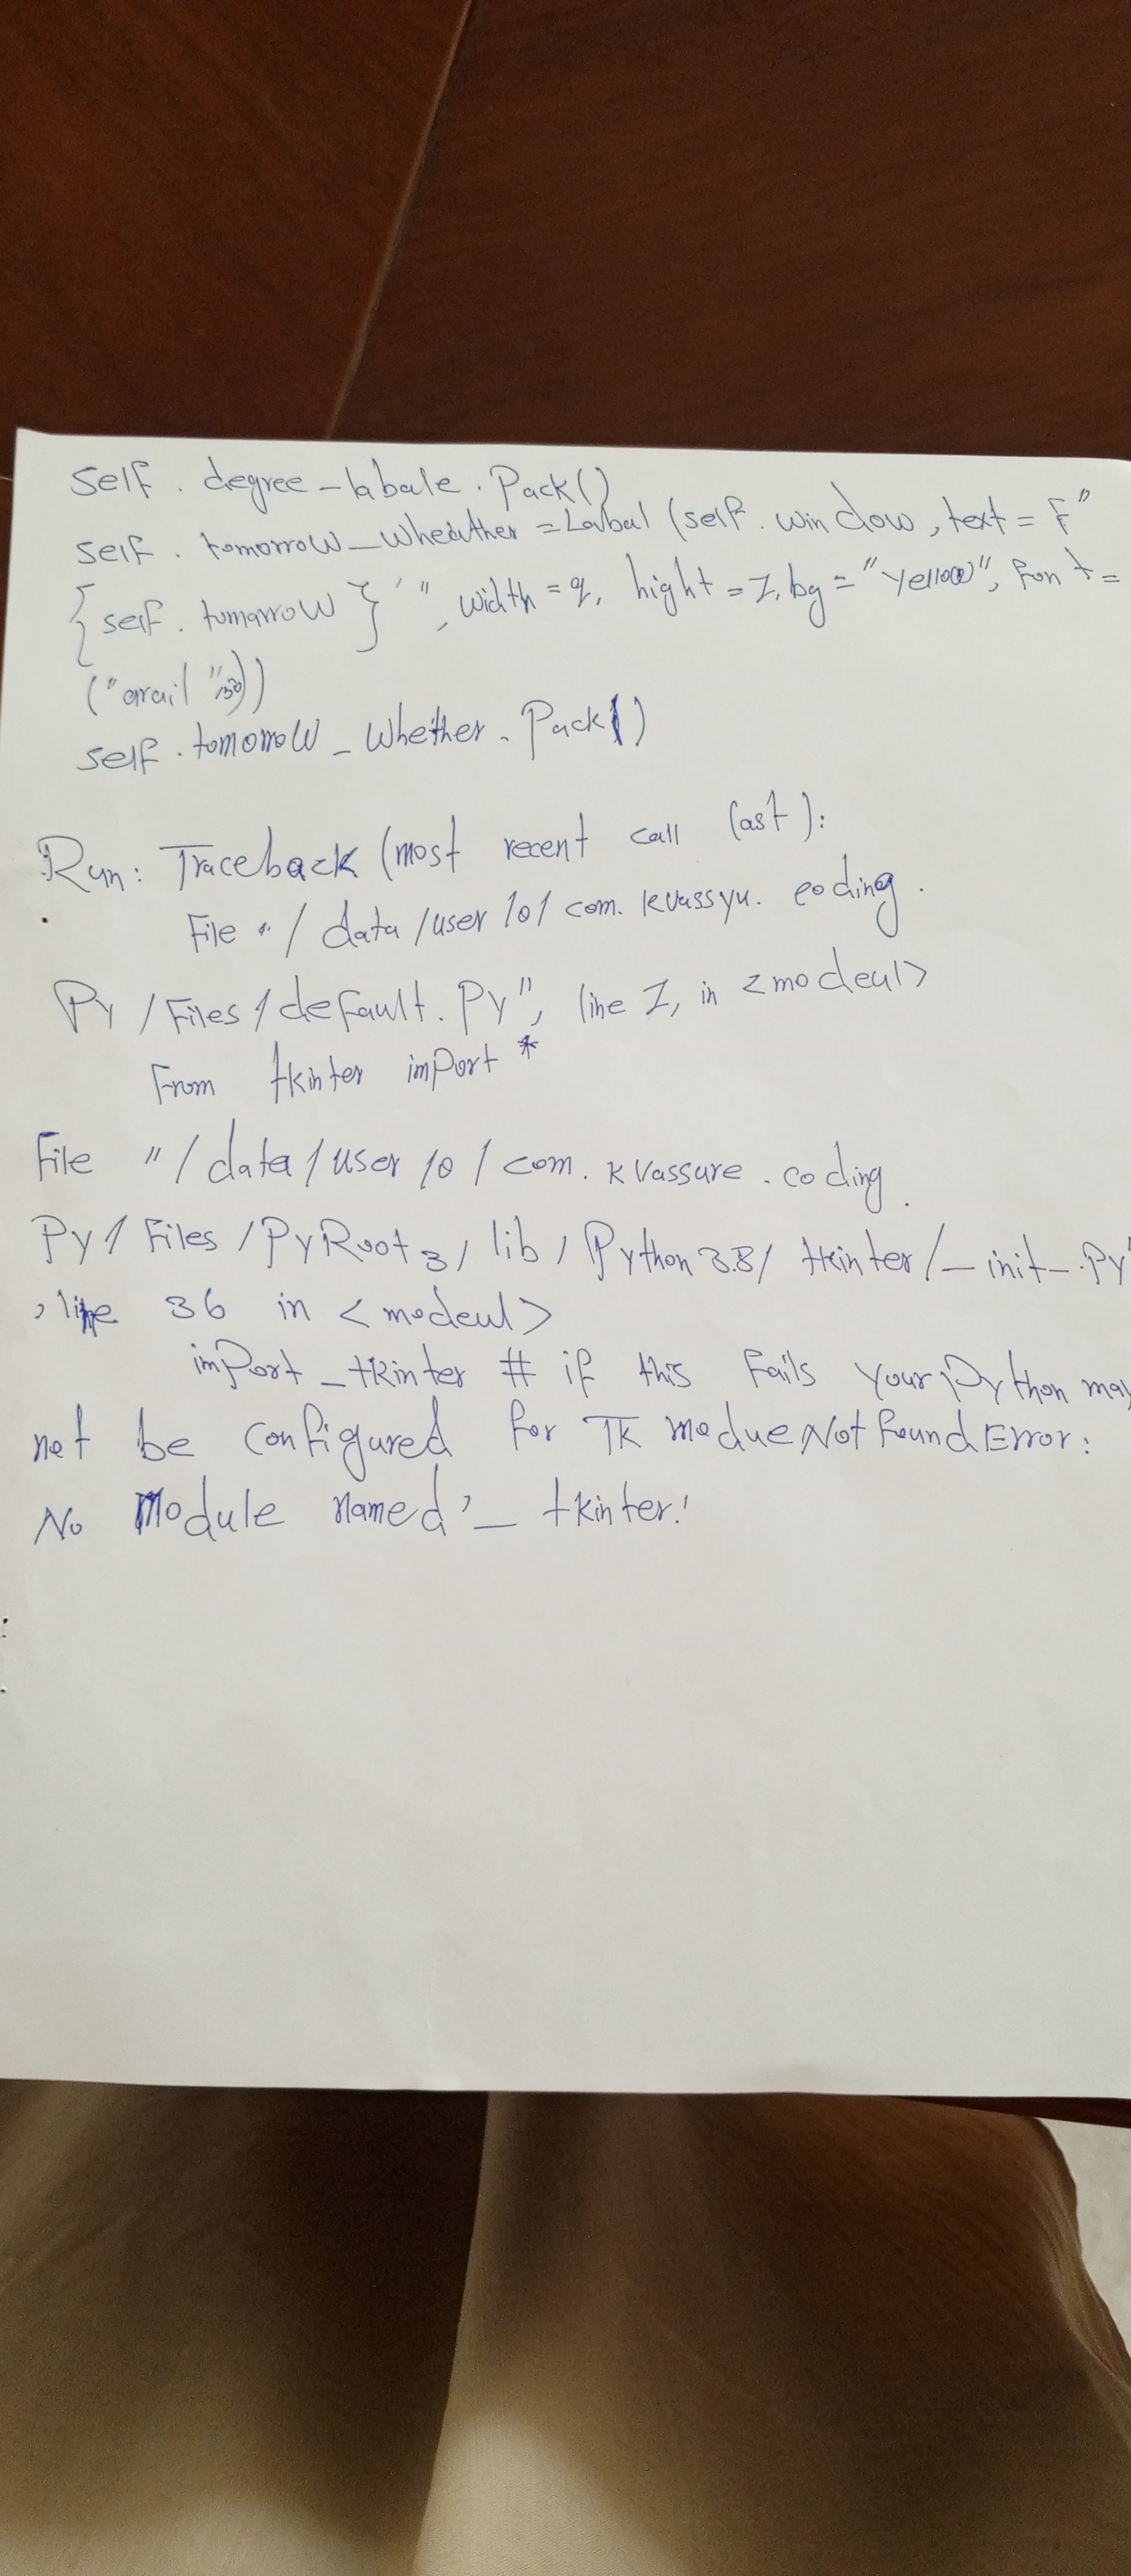 self. degree-labale. Pack()
self. tomorrow_wheather = Loubal (self. window, text = F"
{self. tomarrow}'", width = 9, hight = 2, bg = "yellow", font =
("arail", 30))
self. tomorrow_whether. Pack()
Run: Traceback (most recent call last):
File "/data/user/0/com. kvassyu. coding.
Py/Files/default. Py", line 2, in <modeul>
From tkinter import *
File "/data/user/0/com. kvassure. coding.
Py/Files/PyRoot3/lib/Python3.8/tkinter/_init_.Py"
, line 36 in <modeul>
import_tkinter # if this fails your Python may
not be configured for TK modueNotFoundError:
No Module named '_tkinter'